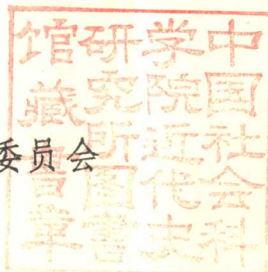 中国社会科
学院近代史
研究所图書
馆藏書章
委员会